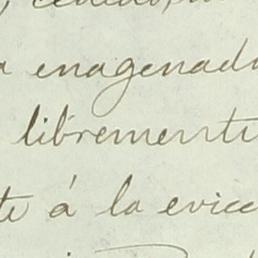 enagenad
libremente
te á la evicc